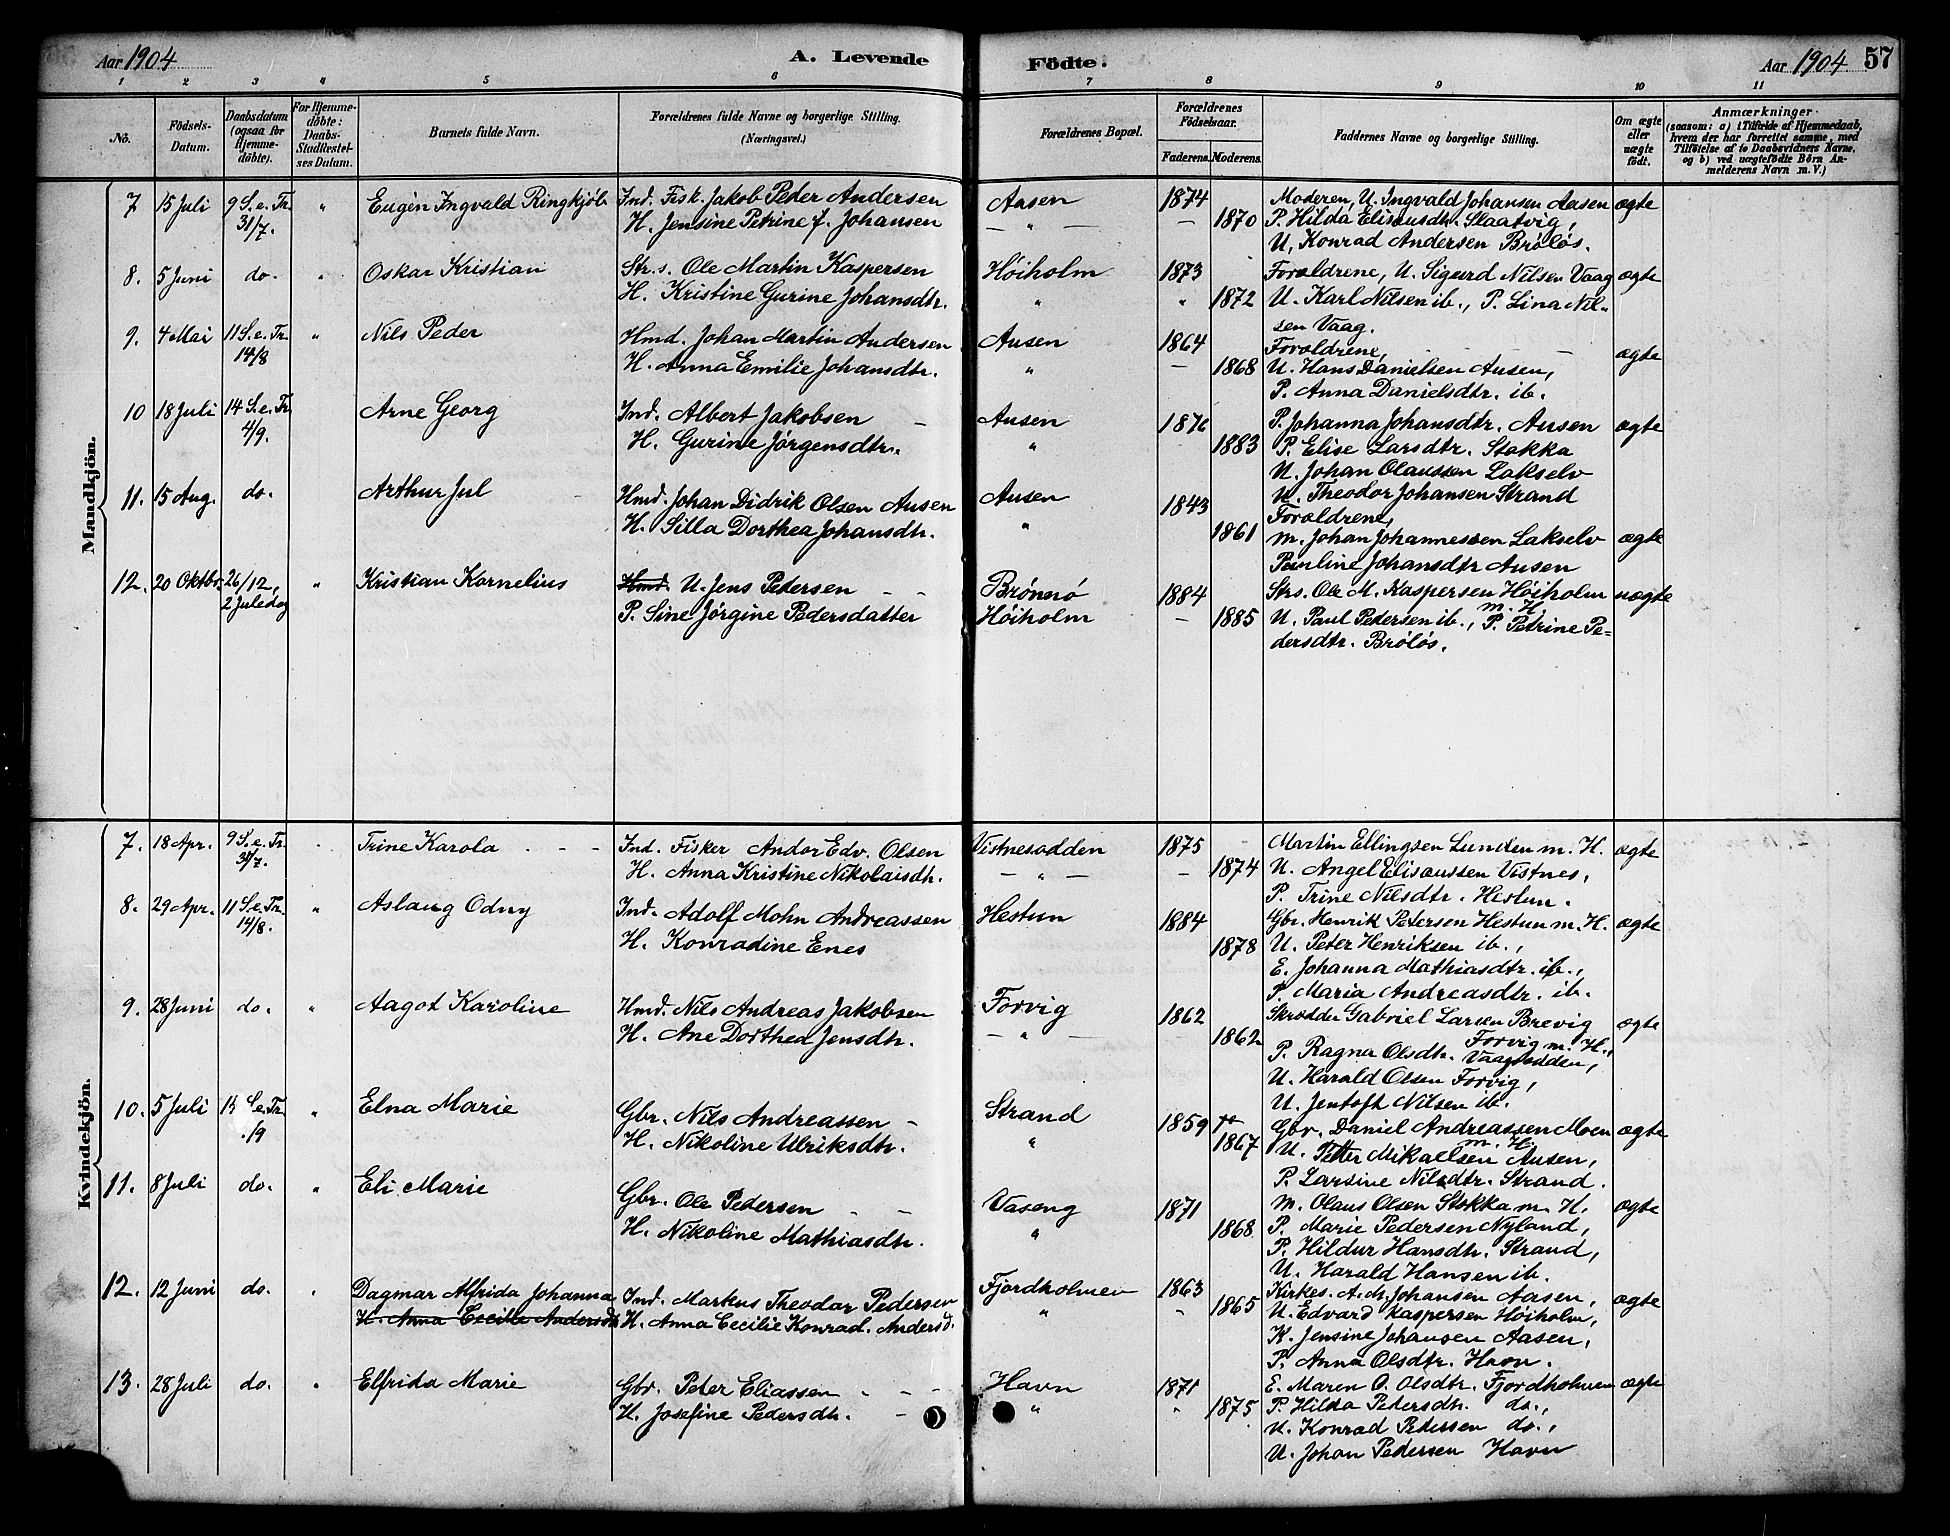 Aar 1904
A. Levende
Födte.
Aar 1904 57
1 2 3 4 5 6 7 8 9 10 11
No.
Födsels-Datum.
Daabsdatum (ogsaa for Hjemme-döbte).
For Hjemme-döbte: Daabs-Stadfæstel-ses Datum.
Barnets fulde Navn.
Forældrenes fulde Navne og borgerlige Stilling. (Næringsvei.)
Forældrenes Bopæl.
Forældrenes Födselsaar.
Faderens. Moderens.
Faddernes Navne og borgerlige Stilling.
Om ægte eller uægte födt.
Anmærkninger
(saasom: a) i Tilfælde af Hjemmedaab, hvem der har forrettet samme, med Tilföielse af to Daabsvidners Navne, og b) ved uægtefödte Börn An-melderens Navn m. V.)
Mandkjön.
7 15 Juli 9 S.e.Tr. 31/7. " Eugen Ingvald Ringkjøb Ind. Fisk. Jakob Peder Andersen Aasen 1874 Moderen, U. Ingvald Johansen Aasen ægte
H. Jensine Petrine f. Johansen — " — — 1870 P. Hilda Eliseusdtr. Slaatvig,
U. Konrad Andersen Brøløs.
8. 5 Juni do. " Oskar Kristian Str.s. Ole Martin Kaspersen Høiholm 1873 Forældrene, U. Sigurd Nilsen Vaag ægte
H. Kristine Gurine Johansdtr. " " 1872 U. Karl Nilsen ib., P. Lina Nil-
sen Vaag.
9. 4 Mai 11 S.e.Tr. 14/8 " Nils Peder Hmd. Johan Martin Andersen Ausen 1864 Forældrene, ægte
H. Anna Emilie Johansdtr. " — 1868 U. Hans Danielsen Ausen,
P. Anna Danielsdtr. ib.
10 18 Juli 14 S.e.Tr. 4/9. Arne Georg Ind. Albert Jakobsen Ausen 1876 P. Johanna Johansdtr. Ausen ægte
H. Gurine Jørgensdtr. " 1883 P. Elise Larsdtr. Stokka
U. Johan Olaussen Lakselv
U. Theodor Johansen Strand
11. 15 Aug. do. Arthur Jul Hmd. Johan Didrik Olsen Ausen Ausen 1843 Forældrene,
H. Silla Dorthea Johansdtr. " 1861 M. Johan Johannessen Lakselv ægte
Pauline Johansdtr Ausen
12. 20 Oktbr. 26/12, 2 Juledag " Kristian Kornelius Hmd. U. Jens Pedersen Brønnø 1884 Strs. Ole M. Kaspersen Høiholm m. H. uægte
P. Sine Jørgine Pedersdatter Høiholm — 1885 U. Paul Pedersen ib., P. Petrine Pe-
dersdtr. Brøløs.
Kvindekjön.
7. 18 Apr. 9 S.e.Tr. 31/7. Trine Karola Ind. Fisker Andor Edv. Olsen Vistnesodden 1875 Martin Ellingsen Lunden m. H. ægte
H. Anna Kristine Nikolaisdtr. — " — — 1874 U. Angel Elisæussen Vistnes,
P. Trine Nilsdtr. Hestun.
8. 29 Apr. 11 S.e.Tr. 14/8. " Aslaug Odny Ind. Adolf Mohn Andreassen Hestun 1884 Gbr. Henrik Petersen Hestun m. H. ægte
H. Konradine Enes 1878 U. Peter Henriksen ib.,
E. Johanna Mathiasdtr. ib.,
P. Maria Andreasdtr. ib.
9. 28 Juni do. " Aagot Karoline Hmd. Nils Andreas Jakobsen Forvig 1862 Skrædder Gabriel Larsen Brevig ægte
H. Ane Dorthea Jensdtr. — " — 1862 Forvig m. H.,
P. Ragna Olsdtr. Vaagsodden,
U. Harald Olsen Forvig,
U. Jentoft Nilsen ib.
10. 5 Juli 14 S.e.Tr. /9 " Elna Marie Gbr. Nils Andreassen Strand 1859 Gbr. Daniel Andreassen Moen m. H. ægte
H. Nikoline Ulriksdtr. " 1867 U. Petter Mikaelsen Ausen,
P. Larsine Nilsdtr. Strand.
11. 8 Juli do. " Eli Marie Gbr. Ole Pedersen Vaseng 1871 M. Olaus Olsen Stokka m. H. ægte
H. Nikoline Mathiasdtr. " 1868 P. Marie Pedersen Nyland,
P. Hildur Hansdtr. Strand,
U. Harald Hansen ib.
12. 12 Juni do. " Dagmar Alfrida Johanna Ind. Markus Theodor Pedersen Fjordholmen 1863 Kirkes. A. M. Johansen Aasen, ægte
H. Anna Cecilie Andersd. H. Anna Cecilie Konrad. Andersd. " " 1865 U. Edvard Kaspersen Høiholm,
K. Jensine Johansen Aasen,
P. Anna Olsdtr. Havn.
13. 28 Juli do. " Elfrida Marie Gbr. Peter Eliassen Havn 1871 E. Maren O. Olsdtr. Fjordholmen ægte
H. Josefine Pedersdtr. " " 1875 P. Hilda Petersdtr. do.,
U. Konrad Petersen do.,
U. Johan Pedersen Havn